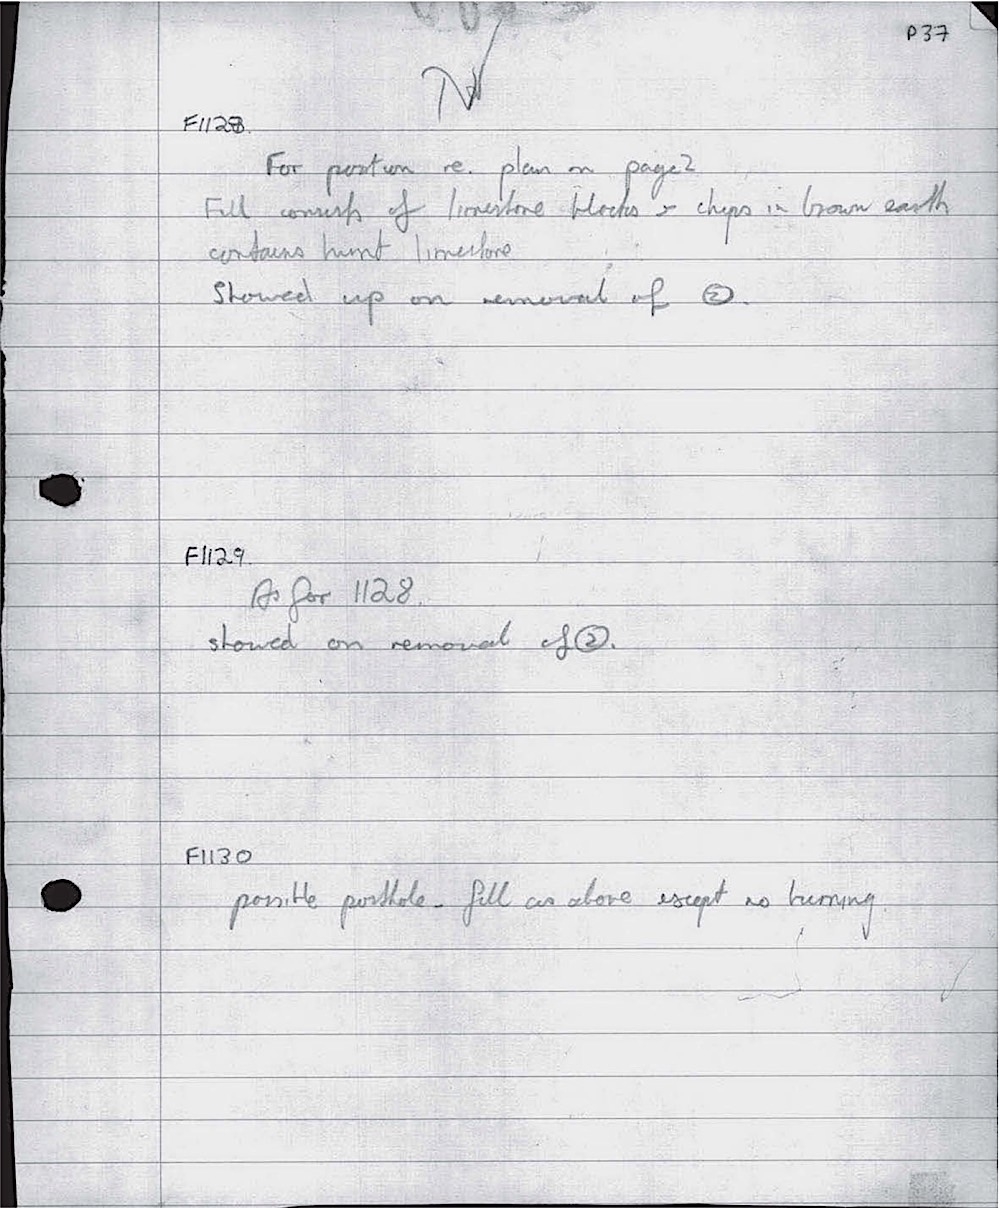 P37
N
F1128.
For position re. plan on page 2
Fill consists of limestone blocks & chips in brown earth
contains burnt limestone
Showed up on removal of ②.
F1129.
As for 1128.
showed on removal of ②.
F1130
possible posthole - fill as above except no burning.